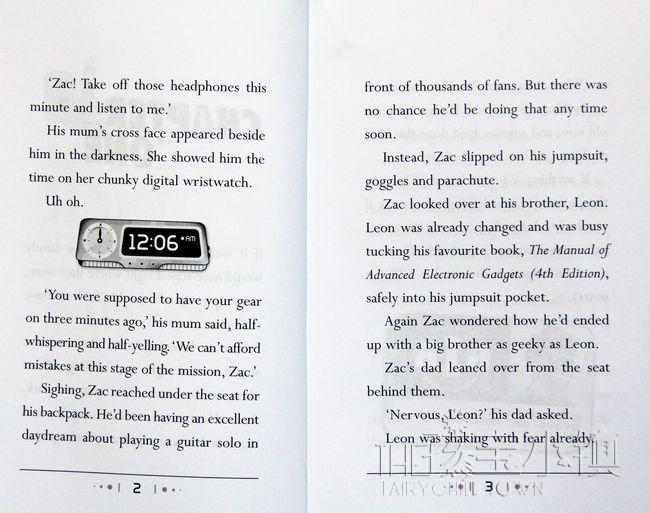 ‘Zac! Take off those headphones this
minute and listen to me.’
His mum’s cross face appeared beside
him in the darkness. She showed him the
time on her chunky digital wristwatch.
Uh oh.
12:06 AM
‘You were supposed to have your gear
on three minutes ago,’ his mum said, half-
whispering and half-yelling. ‘We can’t afford
mistakes at this stage of the mission, Zac.’
Sighing, Zac reached under the seat for
his backpack. He’d been having an excellent
daydream about playing a guitar solo in
2
front of thousands of fans. But there was
no chance he’d be doing that any time
soon.
Instead, Zac slipped on his jumpsuit,
goggles and parachute.
Zac looked over at his brother, Leon.
Leon was already changed and was busy
tucking his favourite book, The Manual of
Advanced Electronic Gadgets (4th Edition),
safely into his jumpsuit pocket.
Again Zac wondered how he’d ended
up with a big brother as geeky as Leon.
Zac’s dad leaned over from the seat
behind them.
‘Nervous, Leon?’ his dad asked.
Leon was shaking with fear already,
3